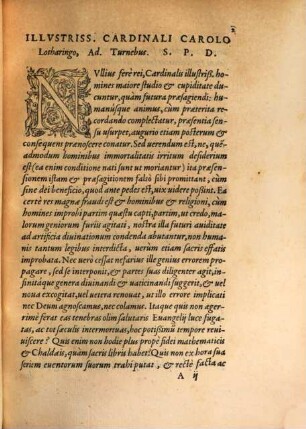 2
ILLVSTRISS. CARDINALI CAROLO
Lotharingo, Ad. Turnebus. S. P. D.
NVllius ferè rei, Cardinalis illustriss. homines
maiore studio & cupiditate ducuntur,
quàm futura præsagiendi: humanúsque
animus, cùm præterita recordando
complectatur, præsentia sensu
vsurpet, augurio etiam posterum &
consequem prænoscere conatur. Sed verendum est, ne, quéadmodum
homines immortalitatis irritum desiderium
est (ea enim conditione nati sunt vt moriantur) ita præsensionem
istam & præsagitionem falsò sibi promittant, cùm
sine dei beneficio, quod ante pedes est, vix videre possint. Ea
certè res magna fraudi est & hominibus & religioni, cùm
homines improbi partim quæstu capti, partim, vt credo, malorum
geniorum furiis agitati, nostra illa futuri auiditate
ad artificia diuinationum condenda abutantur, non humanis
tantùm legibus interdicta, verùm etiam sacris effatis
improbata. Nec verò cessat nefarius ille genius errorem propagare,
sed se interponit, & partes suas diligenter agit, infinitáque
genera diuinandi & vaticinandi suggerit, & vel
noua excogitat, vel vetera reducit, vt illo errore implicati
nec Deum agnoscamus, nec colamus. Itaque quis non agerrimè
ferat eas tenebras olim salutaris Euangelij luce fugatas,
ac tot sæculis intermortuas, hoc potissimùm tempore reuiuiscere?
Quis enim non hodie plus propè fidei mathematicis
& Chaldæis, quàm sacris libris habet? Quis non ex hora sua
seriem euentorum suorum trahi putat, & rectè facta ac
A ij